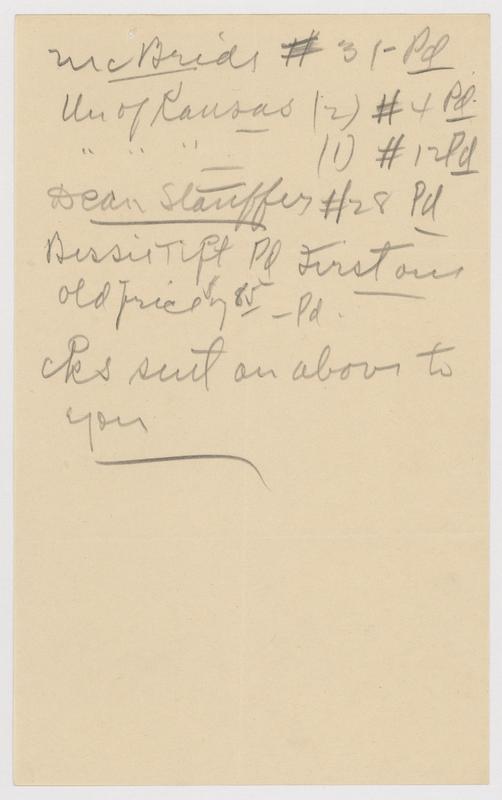 McBride # 31- Pd
Un of Kansas (2) # 4 Pd
" " " (1) # 12 Pd
Dean Stauffer #28 Pd
Bessie Tift Pd First one
old price $7 85 - Pd.
cks sent on above to
you